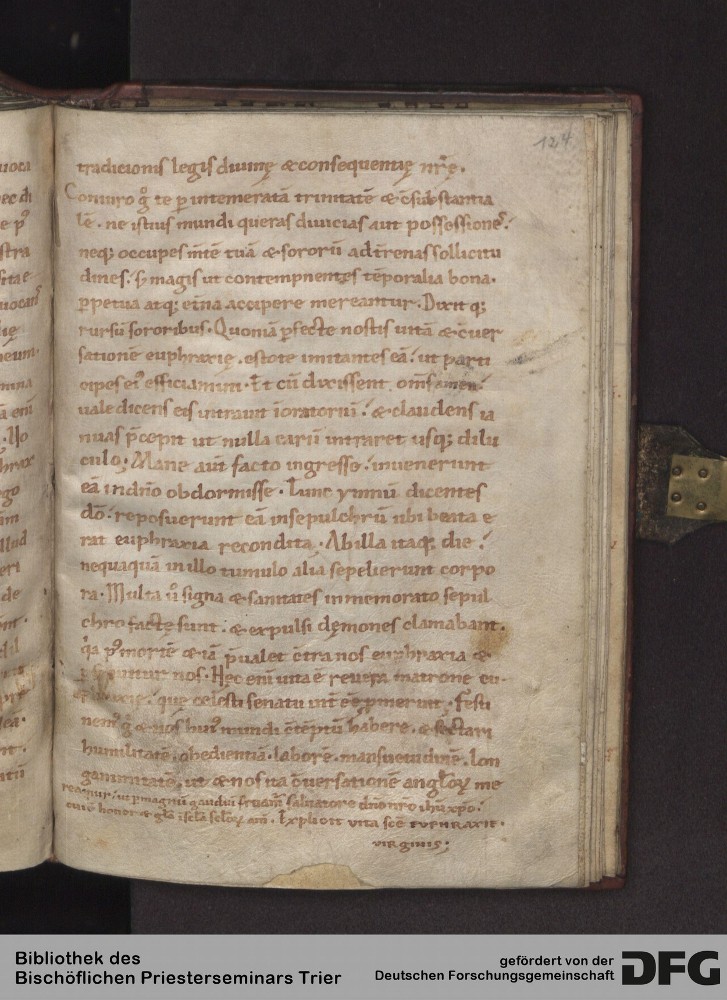 124
tradicionis legis diuinę &consequentię nr̄ę.
Coniuro g̊ te p̱ intemeratā trinitatē & c̄substantia
lē. ne istius mundi queras diuicias aut possessiones.
neq; occupes m̄tē tuā & sororū ad t̄renas sollicitu
dines. s; magis ut contempnentes tēporalia bona.
p̱petua atq; et̄na accipere mereantur. Dixit q;
rursū sororibus. Quoniā p̱fecte nostis uitā & c̄uer
sationē euphraxię. estote imitantes eā. ut parti
cipes ei⁹ efficiamini. Et cū dixissent om̄s amen.
uale dicens eis intrauit ī oratoriū. & claudens ia
nuas p̄cepit ut nulla earū intraret usq; dilu
culo. Mane aut̄ facto ingresse. inuenerunt
eā in dn̄o obdormisse. Tunc ymnū dicentes
dō. reposuerunt eā in sepulchrū ubi beata e
rat euphraxia recondita. Ab illa itaq; die.
nequaquā in illo tumulo alia sepelierunt corpo
ra. Multa ū signa & sanitates in memorato sepul
chro factę sunt. & expulsi dęmones clamabant.
q̇a p⁹ mortē & iā p̄ualet c̄tra nos euphraxia &
nos. Hęc eni uita ē reuera matrone eu-
que celesti senatu Festi
nem⁹ g̊ & nos hui⁹ mundi c̄tēptū habere. & sectari
humilitatē. obedientiā. laborē. mansuetudinē. lon
ganimitatē. ut & nos ita c̄uersationē angl̄oꝝ me
reamur. ut p̱ magnū gaudiū fruam̄ saluatore dn̄o nr̄o ih̄u xp̄o.
cui ē honor & gl̄a ī scl̄a scl̄oꝝ am̄. Explicit uita sc̄ę EVPHRAXIĘ.
VIRGINIS;
Bibliothek des
Bischöflichen Priesterseminars Trier
gefördert von der
Deutschen Forschungsgemeinschaft
DFG